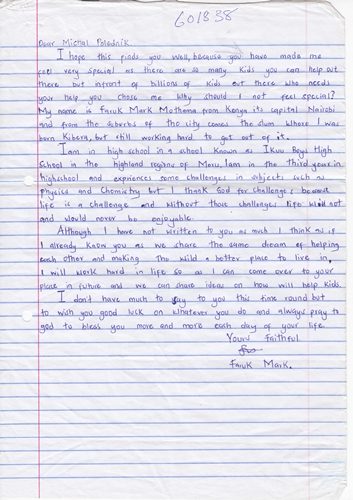 601838
Dear Michal Polednik
I hope this finds you well, because you have made me
feel very special as there are so many kids you can help out
there but infront of billions of kids out there who needs
your help you chose me why should I not feel special?
My name is Faruk Mark Mothama from Kenya its capital Nairobi
and from the suburbs of the city comes the slum where I was
born Kibera, but still working hard to get out of it.
I am in high school in a school known as Ikuu Boys High
School in the highland regions of Meru, I am in the third year in
highschool and experiences some challenges in subjects such as
physics and Chemistry but I thank God for challenges because
life is a challenge and without those challenges life would not
and would never be enjoyable.
Although I have not written to you as much I think as if
I already know you as we share the same dream of helping
each other and making the world a better place to live in,
I will work hard in life so as I can come over to your
place in future and we can share ideas on how will help kids.
I don't have much to say to you this time round but
to wish you good luck on whatever you do and always pray to
god to bless you more and more each day of your life.
Yours Faithful
Faruk Mark.